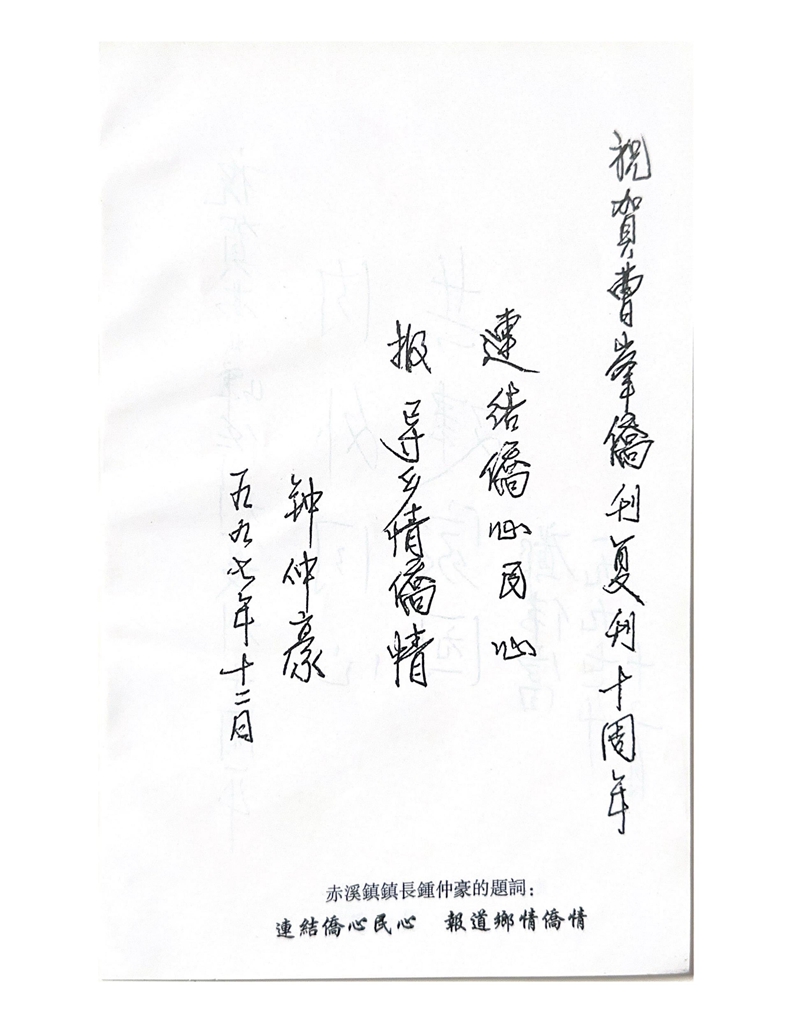 祝賀曹峯僑刊复刊十周年
連结僑心民心
报导乡情僑情
钟仲豪
一九九七年十二月
赤溪鎮鎮長鍾仲豪的題詞：
連結僑心民心　報道鄉情僑情